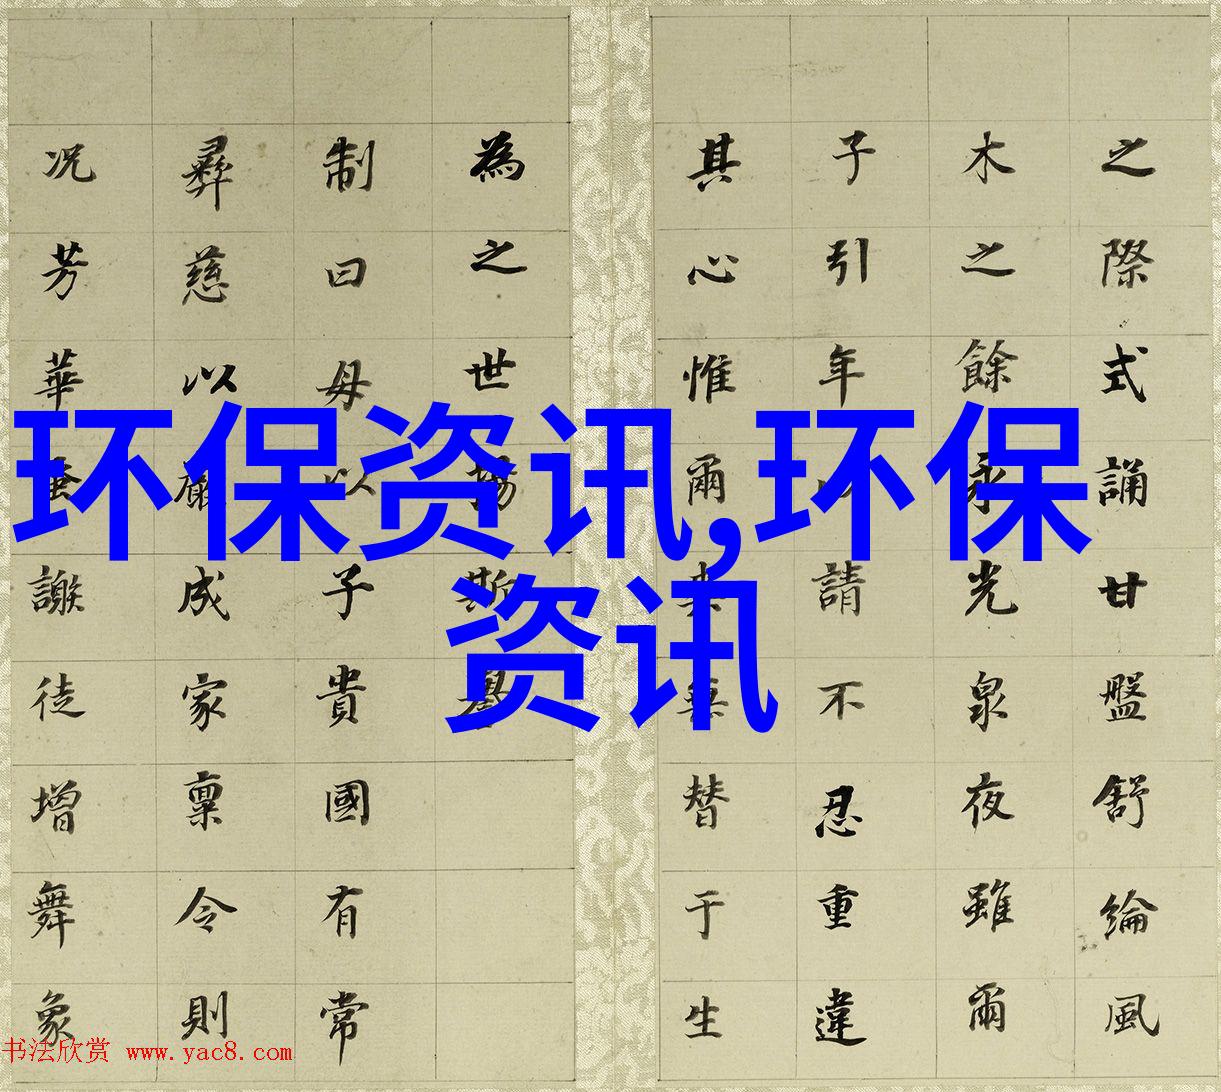 环保资讯,环保
资讯
之際式誦甘盤舒綸風
木之餘永光泉夜雖爾
子引年請不忍重違
其心惟爾無替于生
為之世揚斯
制曰母以子貴國有常
彝慈以嚴成家稟令則
況芳華蚤謝徒增舞象
书法欣赏 www.yac8.com